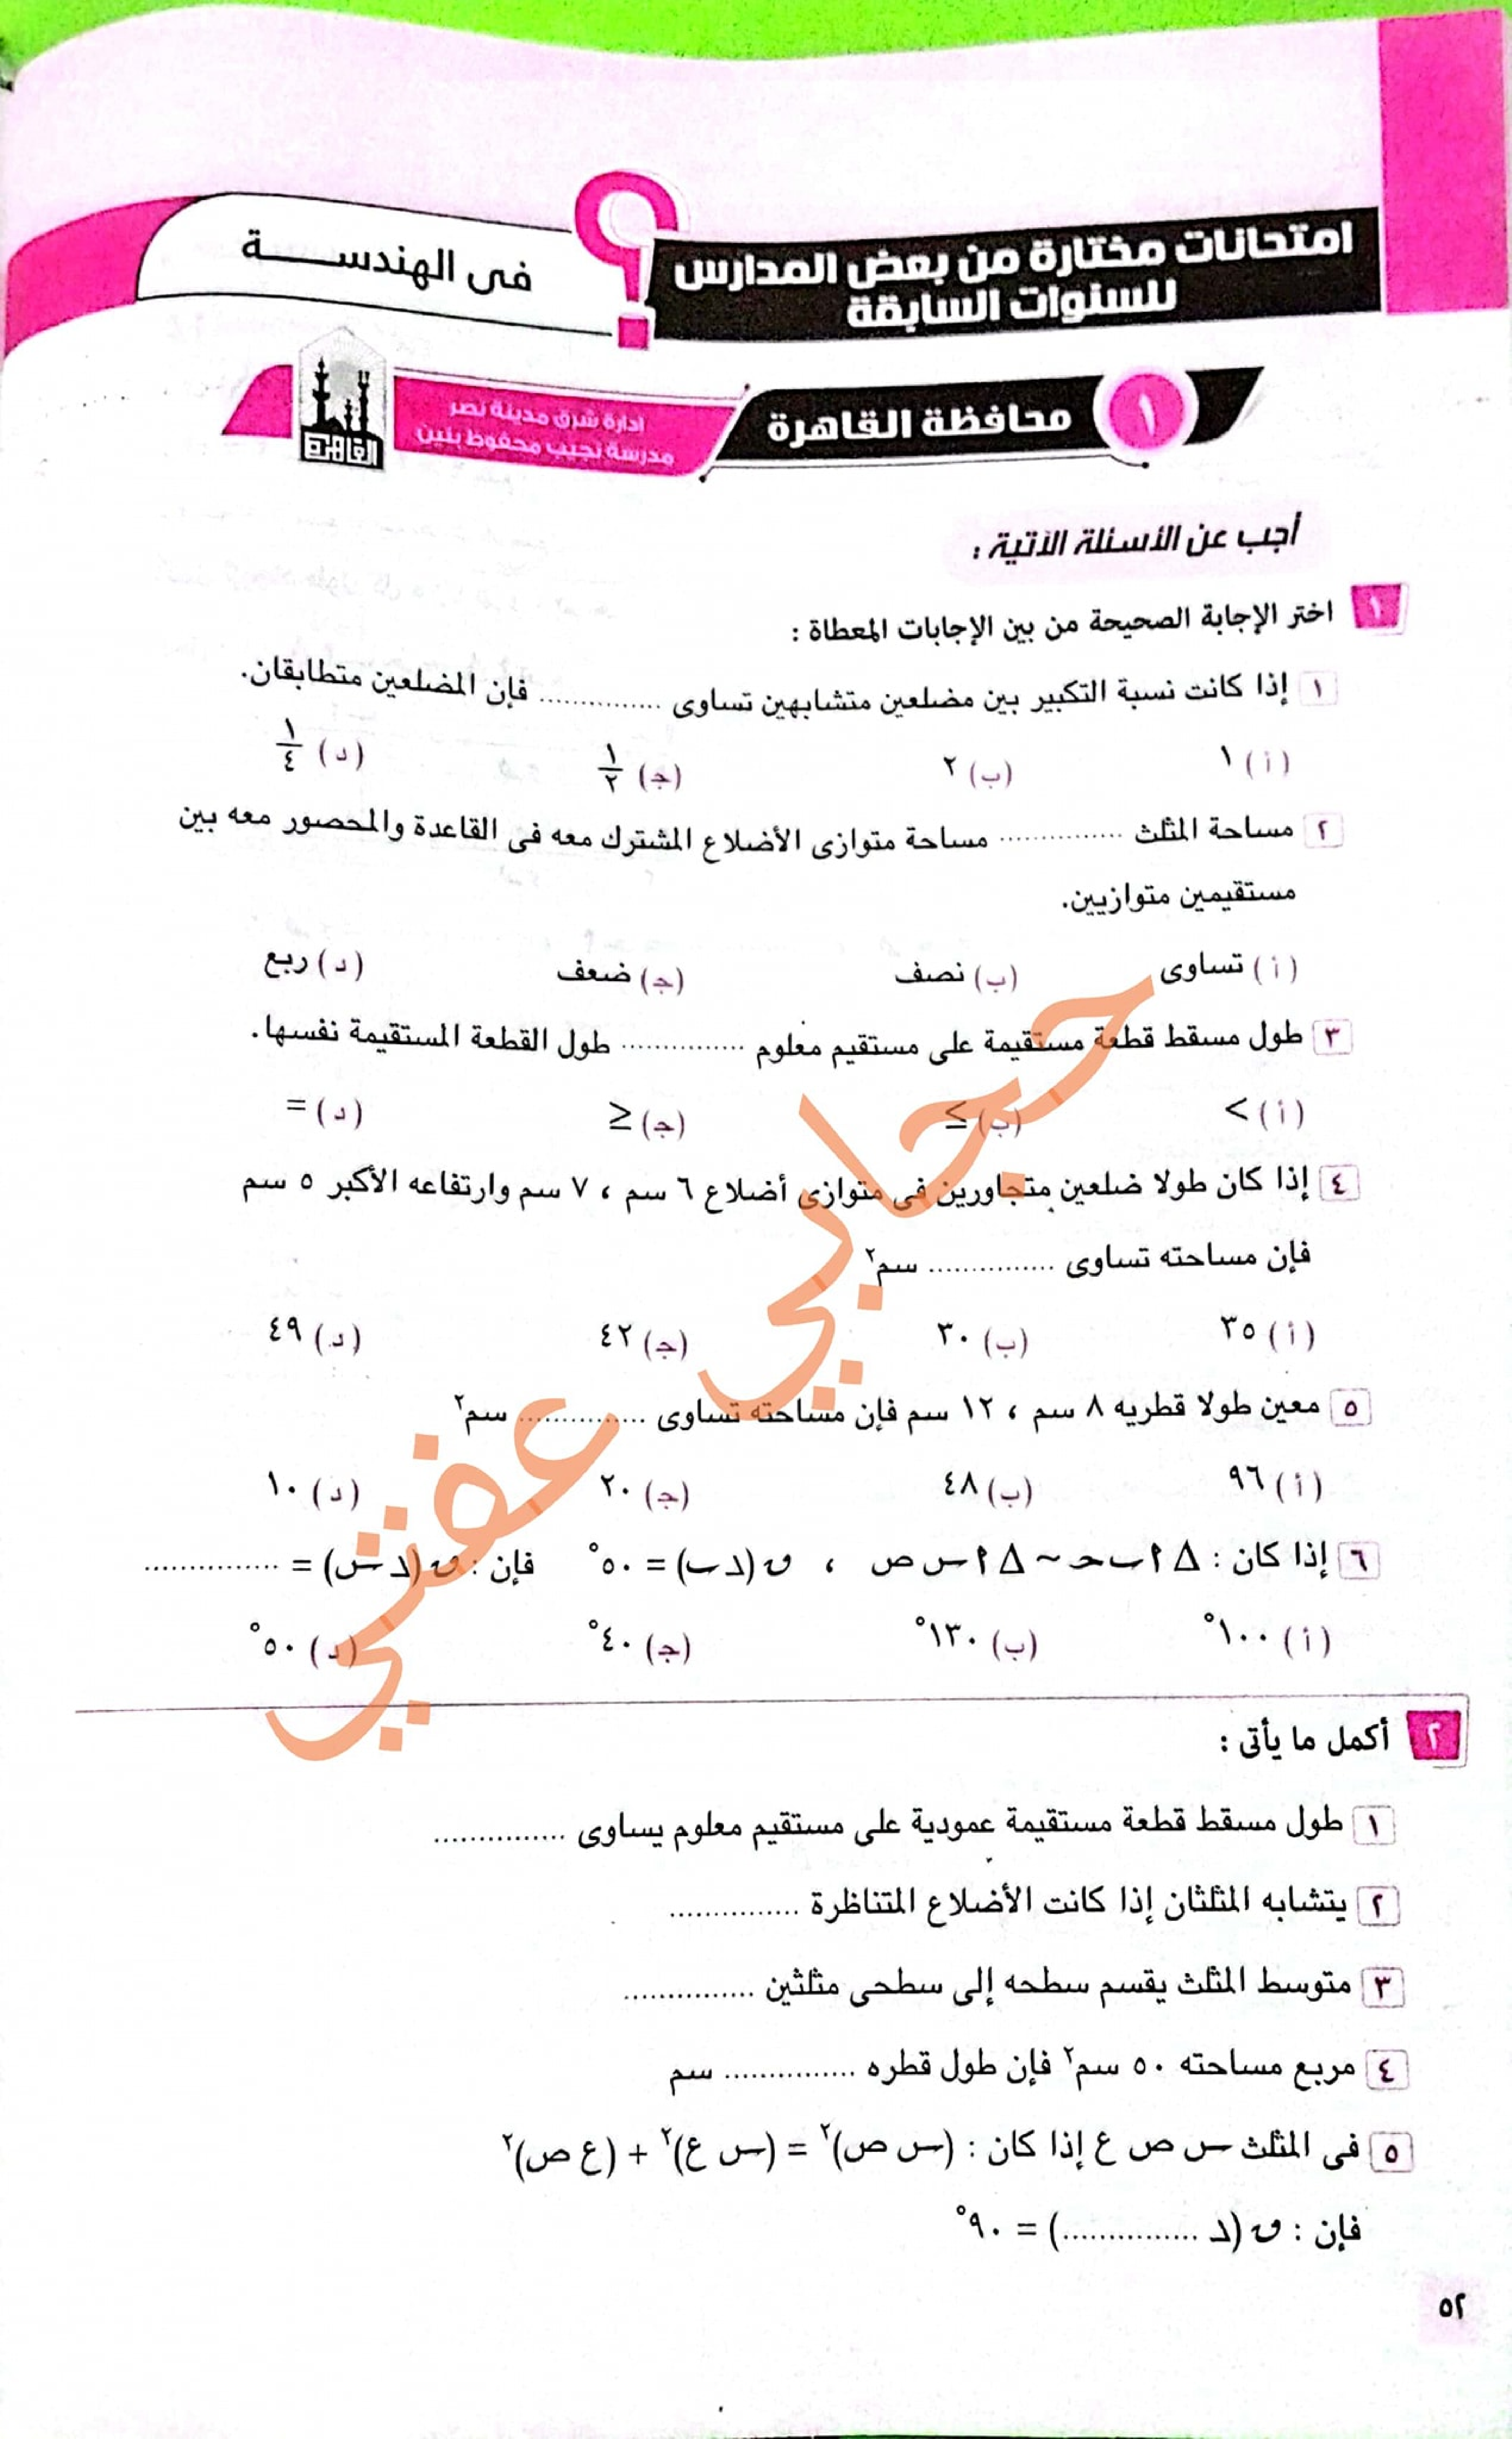 امتحانات مختارة من بعض المدارس
للسنوات السابقة
؟
فى الهندسة
١
محافظة القاهرة
إدارة شرق مدينة نصر
مدرسة نجيب محفوظ بنين
القاهرة
أجب عن الأسئلة الآتية :
١ اختر الإجابة الصحيحة من بين الإجابات المعطاة :
١ إذا كانت نسبة التكبير بين مضلعين متشابهين تساوى ............... فإن المضلعين متطابقان.
(أ) ١ (ب) ٢ (ج) ١/٢ (د) ١/٤
٢ مساحة المثلث ............... مساحة متوازى الأضلاع المشترك معه فى القاعدة والمحصور معه بين
مستقيمين متوازيين.
(أ) تساوى (ب) نصف (ج) ضعف (د) ربع
٣ طول مسقط قطعة مستقيمة على مستقيم معلوم ............... طول القطعة المستقيمة نفسها.
(أ) > (ب) ≥ (ج) ≤ (د) =
٤ إذا كان طولا ضلعين متجاورين فى متوازى أضلاع ٦ سم ، ٧ سم وارتفاعه الأكبر ٥ سم
فإن مساحته تساوى ............... سم٢
(أ) ٣٥ (ب) ٣٠ (ج) ٤٢ (د) ٤٩
٥ معين طولا قطريه ٨ سم ، ١٢ سم فإن مساحته تساوى ............... سم٢
(أ) ٩٦ (ب) ٤٨ (ج) ٢٠ (د) ١٠
٦ إذا كان : Δ ا ب ح ~ Δ ا س ص ، ق (د ب) = ٥٠° فإن : ق (د س) = ...............
(أ) ١٠٠° (ب) ١٣٠° (ج) ٤٠° (د) ٥٠°
حجابي عفتي
٢ أكمل ما يأتى :
١ طول مسقط قطعة مستقيمة عمودية على مستقيم معلوم يساوى ...............
٢ يتشابه المثلثان إذا كانت الأضلاع المتناظرة ...............
٣ متوسط المثلث يقسم سطحه إلى سطحى مثلثين ...............
٤ مربع مساحته ٥٠ سم٢ فإن طول قطره ............... سم
٥ فى المثلث س ص ع إذا كان : (س ص)٢ = (س ع)٢ + (ع ص)٢
فإن : ق (د ...............) = ٩٠°
٥٢